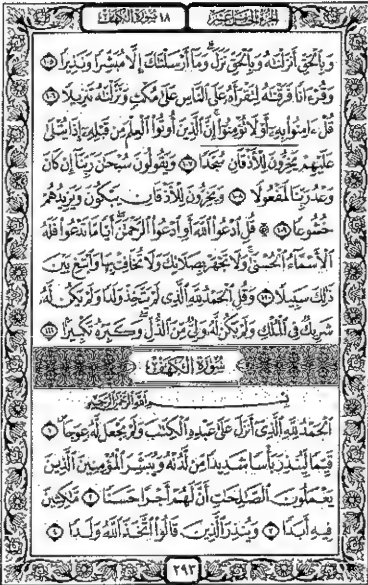 الجزء الخامس عشر ١٨ سورة الكهف
وَبِالْحَقِّ أَنزَلْنَاهُ وَبِالْحَقِّ نَزَلَ ۗ وَمَا أَرْسَلْنَاكَ إِلَّا مُبَشِّرًا وَنَذِيرًا ١٠٥
وَقُرْءَانًا فَرَقْنَاهُ لِتَقْرَأَهُ عَلَى النَّاسِ عَلَىٰ مُكْثٍ وَنَزَّلْنَاهُ تَنزِيلًا ١٠٦
قُلْ ءَامِنُوا بِهِ أَوْ لَا تُؤْمِنُوا ۚ إِنَّ الَّذِينَ أُوتُوا الْعِلْمَ مِن قَبْلِهِ إِذَا يُتْلَىٰ
عَلَيْهِمْ يَخِرُّونَ لِلْأَذْقَانِ سُجَّدًا ١٠٧ وَيَقُولُونَ سُبْحَانَ رَبِّنَا إِن كَانَ
وَعْدُ رَبِّنَا لَمَفْعُولًا ١٠٨ وَيَخِرُّونَ لِلْأَذْقَانِ يَبْكُونَ وَيَزِيدُهُمْ
خُشُوعًا ١٠٩ ۞ قُلِ ادْعُوا اللَّهَ أَوِ ادْعُوا الرَّحْمَٰنَ ۖ أَيًّا مَا تَدْعُوا فَلَهُ
الْأَسْمَاءُ الْحُسْنَىٰ ۚ وَلَا تَجْهَرْ بِصَلَاتِكَ وَلَا تُخَافِتْ بِهَا وَابْتَغِ بَيْنَ
ذَٰلِكَ سَبِيلًا ١١٠ وَقُلِ الْحَمْدُ لِلَّهِ الَّذِي لَمْ يَتَّخِذْ وَلَدًا وَلَمْ يَكُن لَّهُ
شَرِيكٌ فِي الْمُلْكِ وَلَمْ يَكُن لَّهُ وَلِيٌّ مِّنَ الذُّلِّ ۖ وَكَبِّرْهُ تَكْبِيرًا ١١١
سُورَةُ الْكَهْفِ
بِسْمِ اللَّهِ الرَّحْمَٰنِ الرَّحِيمِ
الْحَمْدُ لِلَّهِ الَّذِي أَنزَلَ عَلَىٰ عَبْدِهِ الْكِتَابَ وَلَمْ يَجْعَل لَّهُ عِوَجًا ۜ ١
قَيِّمًا لِّيُنذِرَ بَأْسًا شَدِيدًا مِّن لَّدُنْهُ وَيُبَشِّرَ الْمُؤْمِنِينَ الَّذِينَ
يَعْمَلُونَ الصَّالِحَاتِ أَنَّ لَهُمْ أَجْرًا حَسَنًا ٢ مَّاكِثِينَ
فِيهِ أَبَدًا ٣ وَيُنذِرَ الَّذِينَ قَالُوا اتَّخَذَ اللَّهُ وَلَدًا ٤
٢٩٣